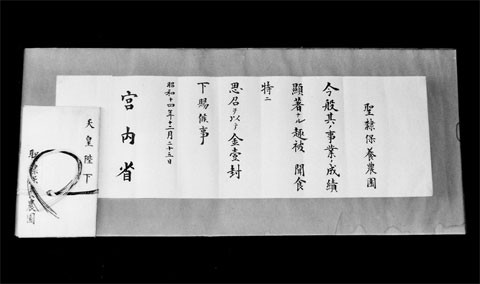 聖隷保養農園
今般其ノ事業ノ成績
顯著ナル趣被 聞食
特ニ
思召ヲ以テ金壹封
下賜候事
昭和十四年十二月二十五日
宮内省
天皇陛下
聖隷保養農園